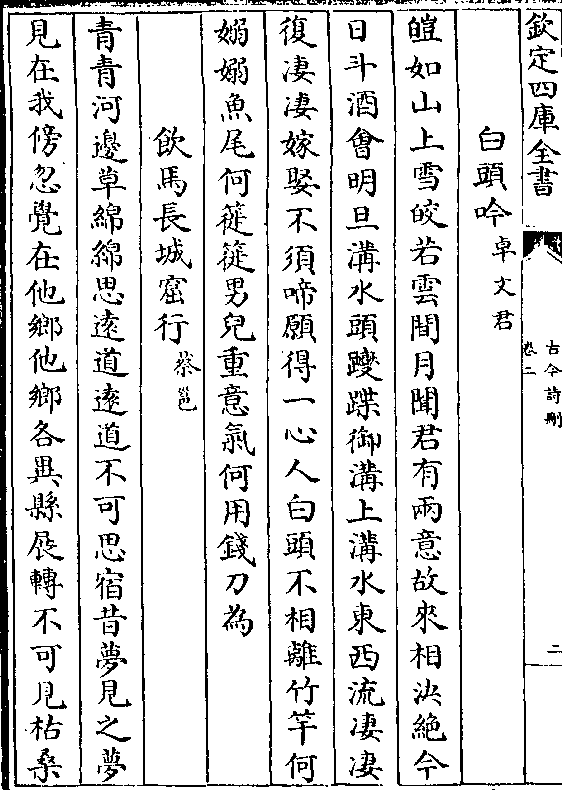 欽定四庫全書
古今詩刪
卷二
二
白頭吟 卓文君
皚如山上雪皎若雲間月聞君有兩意故來相決絶今
日斗酒會明旦溝水頭躞蹀御溝上溝水東西流凄凄
復凄凄嫁娶不須啼願得一心人白頭不相離竹竿何
嫋嫋魚尾何簁簁男兒重意氣何用錢刀為
飲馬長城窟行 蔡邕
青青河邊草綿綿思逺道逺道不可思宿昔夢見之夢
見在我傍忽覺在他鄉他鄉各異縣展轉不可見枯桑